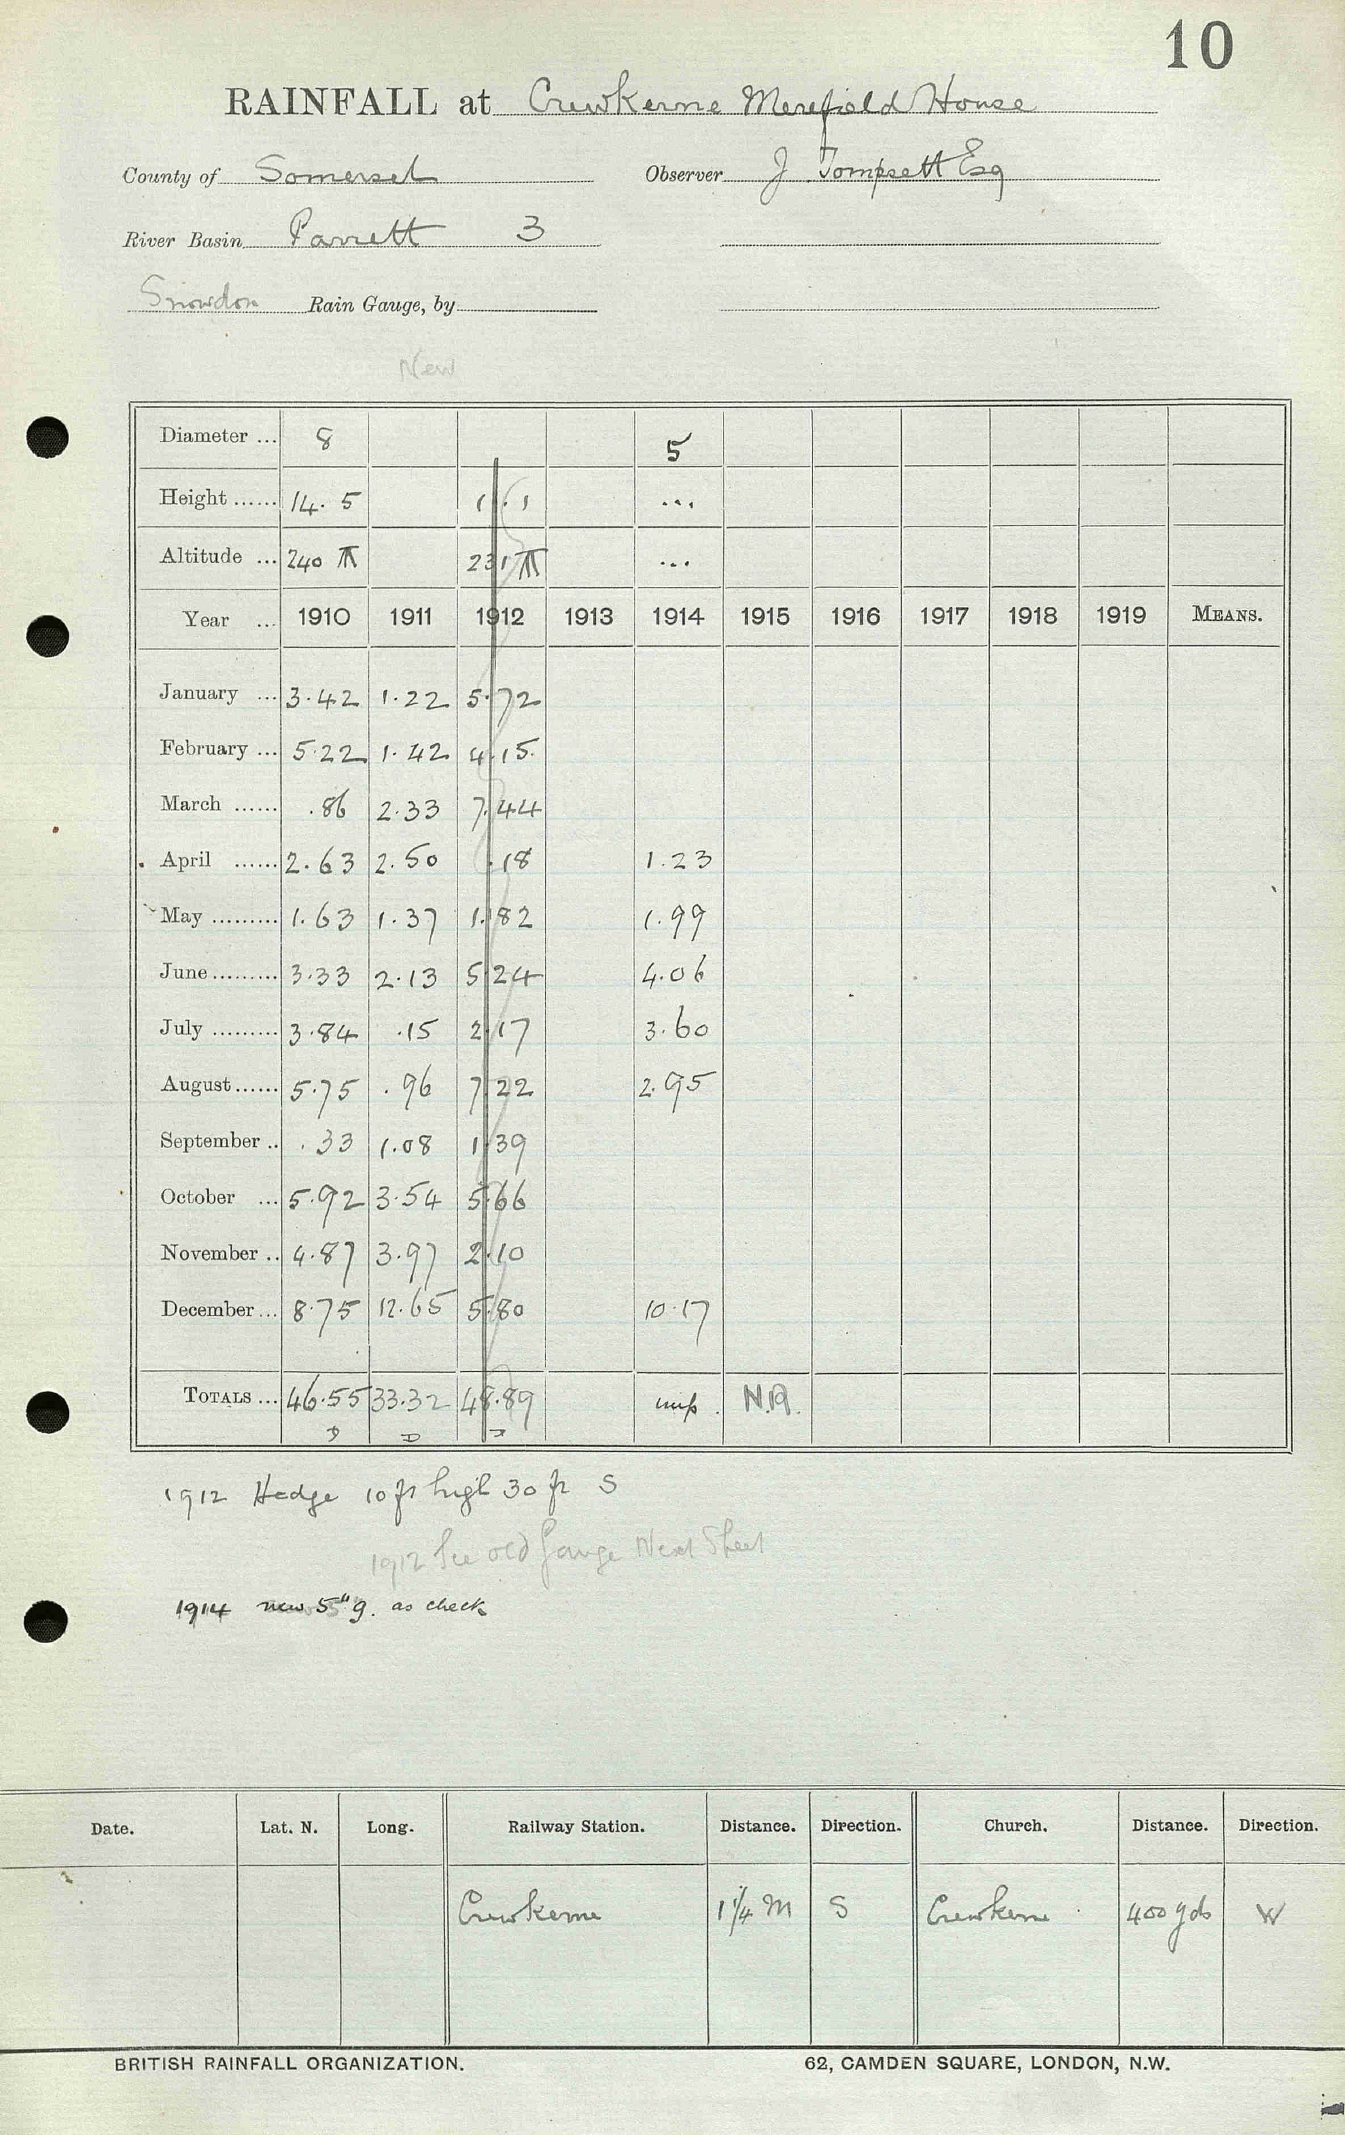 10
RAINFALL at Crewkerne Merefield House
County of Somerset Observer J Tompsett Esq
River Basin Parrett 3
Snowdon Rain Gauge, by
New
Diameter ... 8 5
Height ...... 14. 5 1.1 ...
Altitude ... 240 231 ...
Year ... 1910 1911 1912 1913 1914 1915 1916 1917 1918 1919 MEANS.
January ... 3.42 1.22 5.72
February ... 5.22 1.42 4.15
March ...... .86 2.33 7.44
April ...... 2.63 2.50 .18 1.23
May ......... 1.63 1.37 1.82 1.99
June ......... 3.33 2.13 5.24 4.06
July ......... 3.84 .15 2.17 3.60
August ...... 5.75 .96 7.22 2.95
September .. .33 1.08 1.39
October ... 5.92 3.54 5.66
November .. 4.87 3.97 2.10
December ... 8.75 12.65 5.80 10.17
TOTALS ... 46.55 33.32 48.89 imp. N.A.
1912 Hedge 10 ft high 30 ft S
1912 See old Gauge Next Sheet
1914 new 5" g. as check
Date. Lat. N. Long. Railway Station. Distance. Direction. Church. Distance. Direction.
Crewkerne 1 1/4 M S Crewkerne 400 yds W
BRITISH RAINFALL ORGANIZATION. 62, CAMDEN SQUARE, LONDON, N.W.